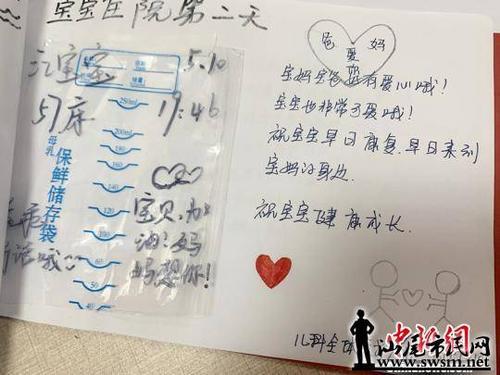 宝宝住院第二天
江宝宝
5.10
57床
19:46
250ml
200ml
180
160
140
120
100
80
60
50
40
母乳
保鲜储存袋
宝贝,加
油!妈
妈想你!
爸 妈
爱
宝妈宝爸超有爱心哦!
宝宝也非常可爱哦!
祝宝宝早日康复,早日来到
宝妈的身边.
祝宝宝健康成长.
儿科全体
汕尾市民网
www.swsm.net